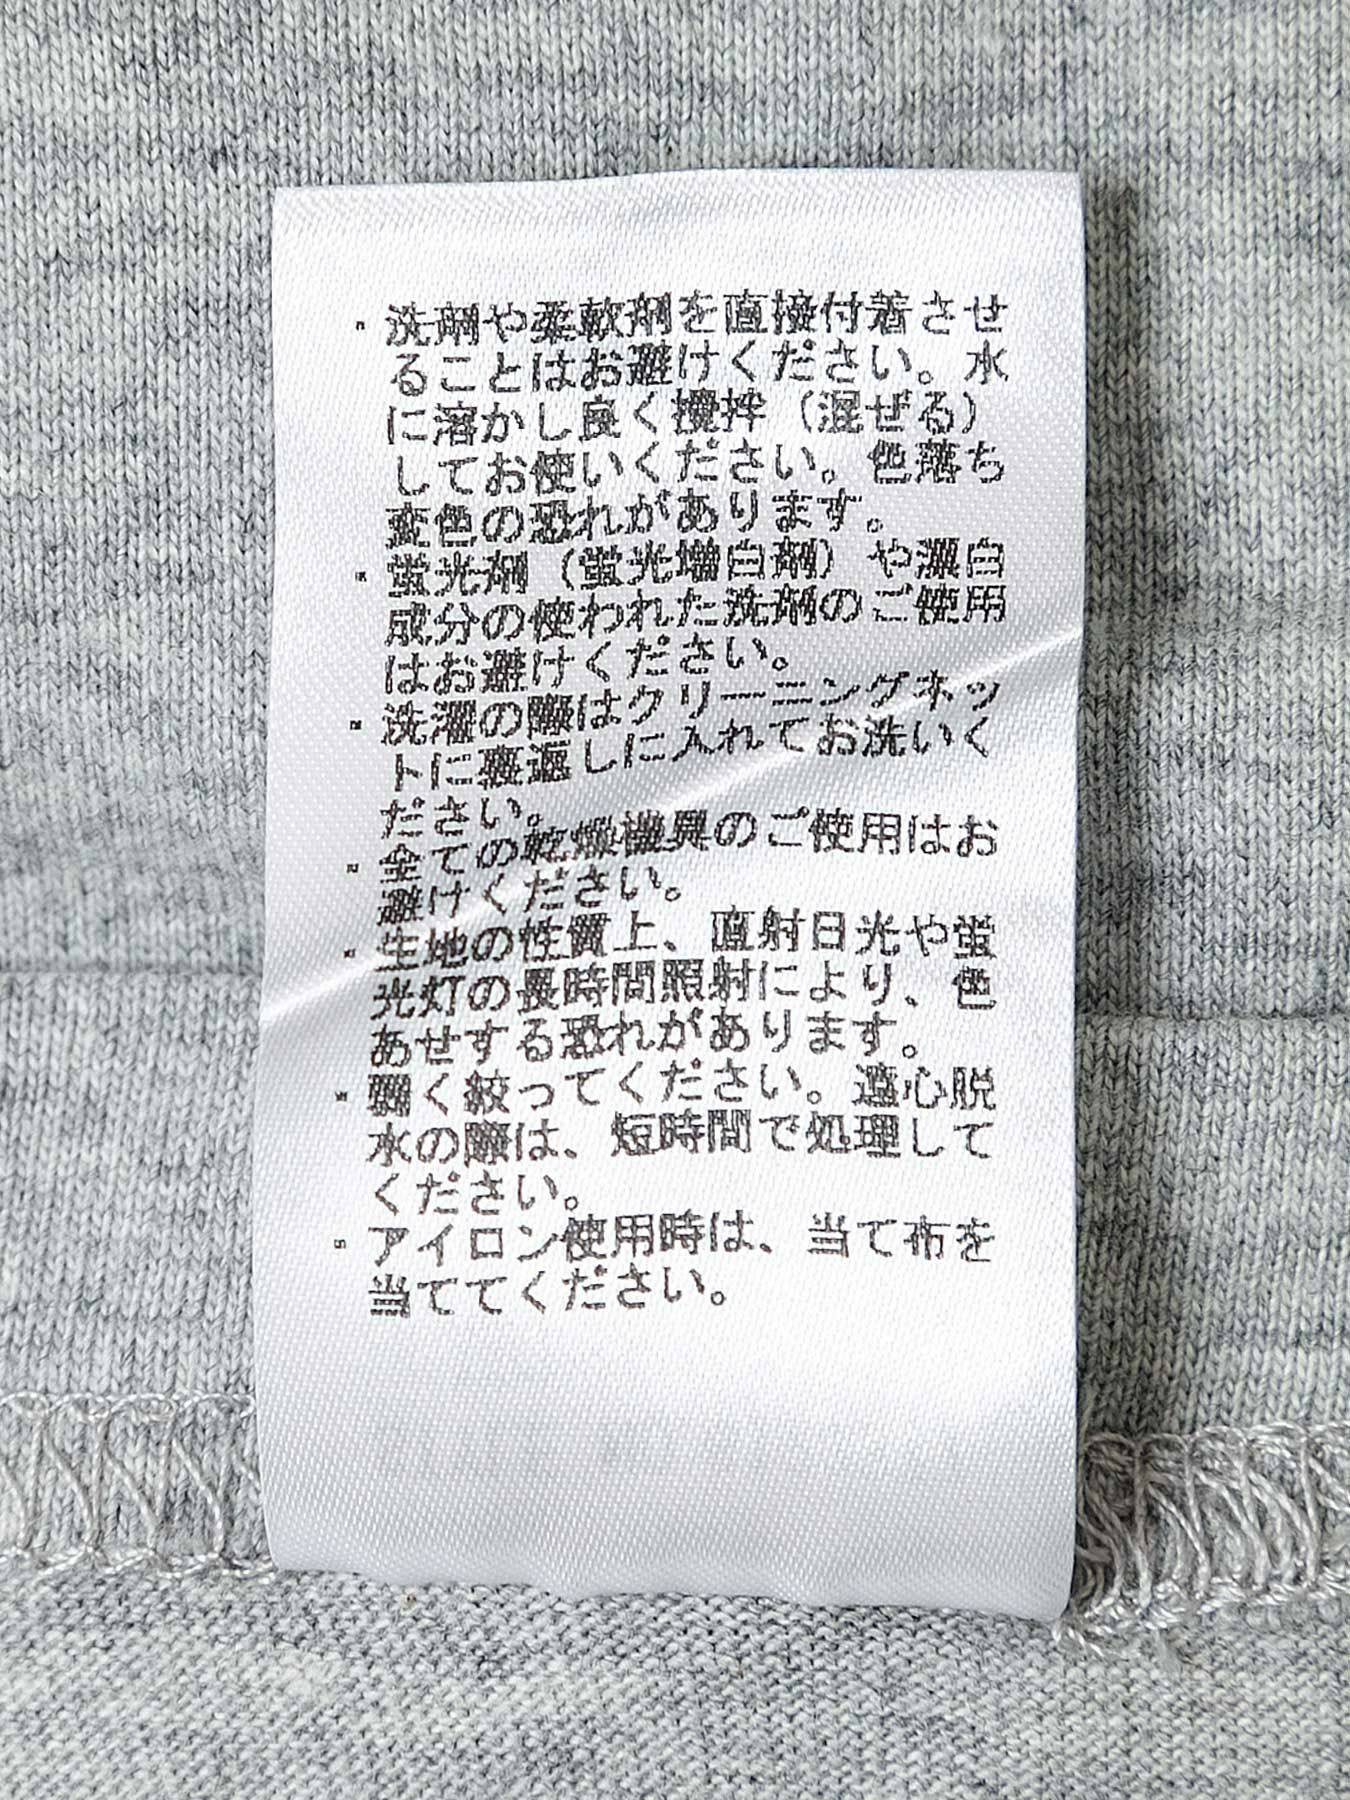 ・洗剤や柔軟剤を直接付着させ
ることはお避けください。水
に溶かし良く攪拌（混ぜる）
してお使いください。色落ち
変色の恐れがあります。
・蛍光剤（蛍光増白剤）や漂白
成分の使われた洗剤のご使用
はお避けください。
・洗濯の際はクリーニングネッ
トに裏返しに入れてお洗いく
ださい。
・全ての乾燥機具のご使用はお
避けください。
・生地の性質上、直射日光や蛍
光灯の長時間照射により、色
あせする恐れがあります。
・弱く絞ってください。遠心脱
水の際は、短時間で処理して
ください。
・アイロン使用時は、当て布を
当ててください。